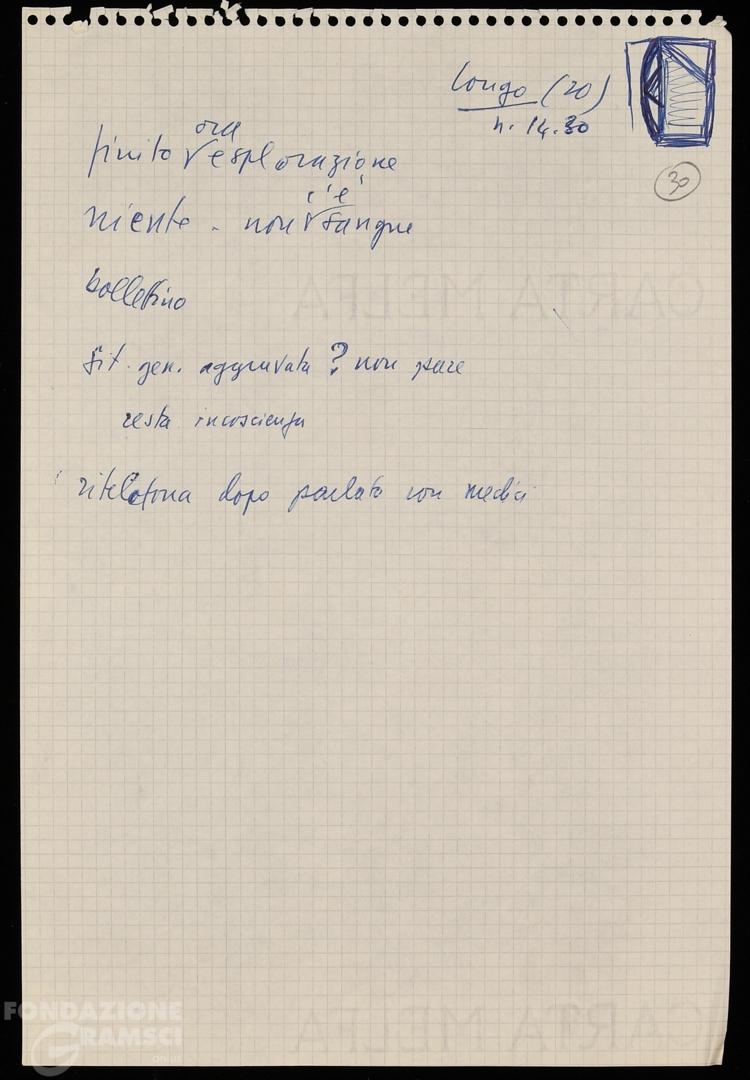 Longo (20)
h. 14.30
30
finito ora esplorazione
niente - non c'è sangue
bolletino
sit. gen. aggravata? non pare
resta incoscienza
ritelefona dopo parlato con medici
CARTA MELFA
CARTA MELFA
FONDAZIONE
GRAMSCI
onlus